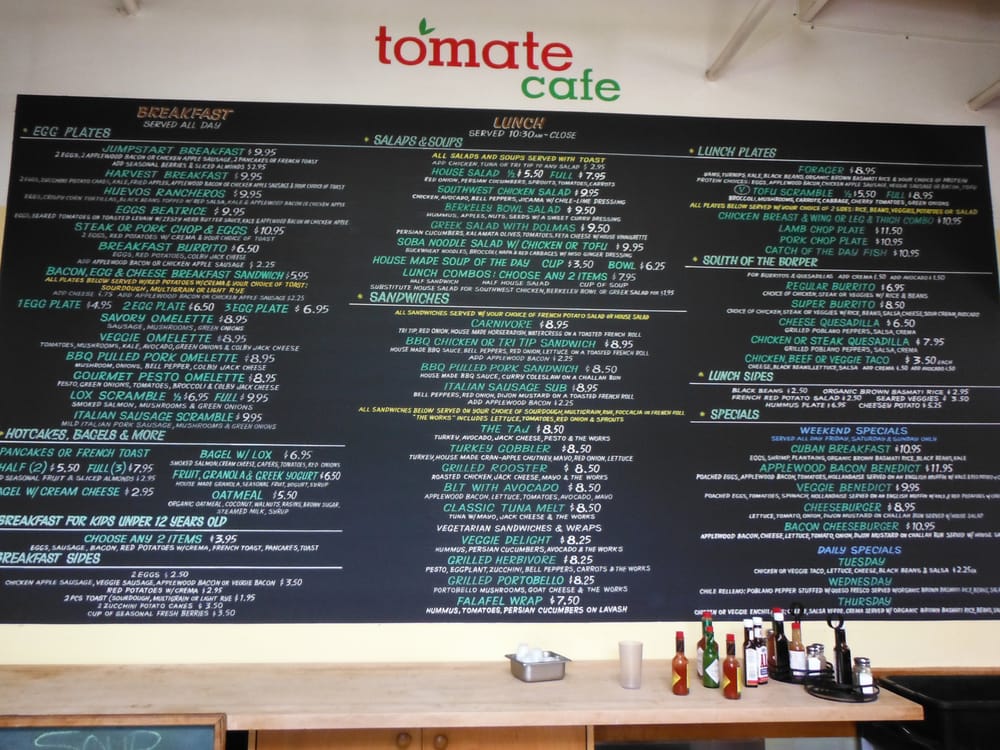 tomate
cafe
BREAKFAST
SERVED ALL DAY
* EGG PLATES
JUMPSTART BREAKFAST $9.95
2 EGGS, 2 APPLEWOOD BACON OR CHICKEN APPLE SAUSAGE, 2 PANCAKES OR FRENCH TOAST
ADD SEASONAL BERRIES & SLICED ALMONDS $2.95
HARVEST BREAKFAST $9.95
2 EGGS, 2 ZUCCHINI POTATO CAKES, KALE, FRIED APPLES, APPLEWOOD BACON OR CHICKEN APPLE SAUSAGE & YOUR CHOICE OF TOAST
HUEVOS RANCHEROS $9.95
2 EGGS, CRISPY CORN TORTILLAS, BLACK BEANS TOPPED W/ RED SALSA, KALE & APPLEWOOD BACON OR CHICKEN APPLE
EGGS BEATRICE $9.95
2 EGGS, SEARED TOMATOES ON TOASTED LEVAIN W/ ZESTY HERB BUTTER SAUCE, KALE & APPLEWOOD BACON OR CHICKEN APPLE
STEAK OR PORK CHOP & EGGS $10.95
2 EGGS, RED POTATOES W/ CREMA & YOUR CHOICE OF TOAST
BREAKFAST BURRITO $6.50
EGGS, RED POTATOES, COLBY JACK CHEESE
ADD APPLEWOOD BACON OR CHICKEN APPLE SAUSAGE $2.25
BACON, EGG & CHEESE BREAKFAST SANDWICH $5.95
ALL PLATES BELOW SERVED W/ RED POTATOES W/ CREMA & YOUR CHOICE OF TOAST:
SOURDOUGH, MULTIGRAIN OR LIGHT RYE
ADD CHEESE $.75 ADD APPLEWOOD BACON OR CHICKEN APPLE SAUSAGE $2.25
1 EGG PLATE $4.95 2 EGG PLATE $6.50 3 EGG PLATE $6.95
SAVORY OMELETTE $8.95
SAUSAGE, MUSHROOMS, GREEN ONIONS
VEGGIE OMELETTE $8.95
TOMATOES, MUSHROOMS, KALE, AVOCADO, GREEN ONIONS & COLBY JACK CHEESE
BBQ PULLED PORK OMELETTE $8.95
MUSHROOM, ONIONS, BELL PEPPER, COLBY JACK CHEESE
GOURMET PESTO OMELETTE $8.95
PESTO, GREEN ONIONS, TOMATOES, BROCCOLI & COLBY JACK CHEESE
LOX SCRAMBLE ½ $6.95 FULL $9.95
SMOKED SALMON, MUSHROOMS & GREEN ONIONS
ITALIAN SAUSAGE SCRAMBLE $9.95
MILD ITALIAN PORK SAUSAGE, MUSHROOMS & GREEN ONIONS
* HOTCAKES, BAGELS & MORE
PANCAKES OR FRENCH TOAST
HALF (2) $5.50 FULL (3) $7.95
SEASONAL FRUIT & SLICED ALMONDS $2.95
BAGEL W/ CREAM CHEESE $2.95
BAGEL W/ LOX $6.95
SMOKED SALMON, CREAM CHEESE, CAPERS, TOMATOES, RED ONIONS
FRUIT, GRANOLA & GREEK YOGURT $6.50
HOUSE MADE GRANOLA, SEASONAL FRUIT, YOGURT, SYRUP
OATMEAL $5.50
ORGANIC OATMEAL, COCONUT, WALNUTS, RAISINS, BROWN SUGAR,
STEAMED MILK, SYRUP
BREAKFAST FOR KIDS UNDER 12 YEARS OLD
CHOOSE ANY 2 ITEMS $3.95
EGGS, SAUSAGE, BACON, RED POTATOES W/ CREMA, FRENCH TOAST, PANCAKES, TOAST
BREAKFAST SIDES
2 EGGS $2.50
CHICKEN APPLE SAUSAGE, VEGGIE SAUSAGE, APPLEWOOD BACON OR VEGGIE BACON $3.50
RED POTATOES W/ CREMA $2.95
2 PCS TOAST (SOURDOUGH, MULTIGRAIN OR LIGHT RYE $1.95
2 ZUCCHINI POTATO CAKES $3.50
CUP OF SEASONAL FRESH BERRIES $3.50
LUNCH
SERVED 10:30 AM - CLOSE
* SALADS & SOUPS
ALL SALADS AND SOUPS SERVED WITH TOAST
ADD CHICKEN, TUNA OR TRI TIP TO ANY SALAD $
HOUSE SALAD ½ $5.50 FULL $7.95
RED ONION, PERSIAN CUCUMBERS, SPROUTS, TOMATOES, CARROTS
SOUTHWEST CHICKEN SALAD $9.95
CHICKEN, AVOCADO, BELL PEPPERS, JICAMA W/ CHILE-LIME DRESSING
BERKELEY BOWL SALAD $9.50
HUMMUS, APPLES, NUTS, SEEDS W/ A SWEET CURRY DRESSING
GREEK SALAD WITH DOLMAS $9.50
PERSIAN CUCUMBERS, KALAMATA OLIVES, TOMATOES, FETA CHEESE W/ HOUSE VINAIGRETTE
SOBA NOODLE SALAD W/ CHICKEN OR TOFU $9.95
BUCKWHEAT NOODLES, BROCCOLI, NAPA & RED CABBAGES W/ MISO GINGER DRESSING
HOUSE MADE SOUP OF THE DAY CUP $3.50 BOWL $6.25
LUNCH COMBOS: CHOOSE ANY 2 ITEMS $7.95
HALF SANDWICH HALF HOUSE SALAD CUP OF SOUP
SUBSTITUTE HOUSE SALAD FOR SOUTHWEST CHICKEN, BERKELEY BOWL OR GREEK SALAD FOR $1.95
* SANDWICHES
ALL SANDWICHES SERVED W/ YOUR CHOICE OF FRENCH POTATO SALAD OR HOUSE SALAD
CARNIVORE $8.95
TRI TIP, RED ONION, HOUSE MADE HORSERADISH, WATERCRESS ON A TOASTED FRENCH ROLL
BBQ CHICKEN OR TRI TIP SANDWICH $8.95
HOUSE MADE BBQ SAUCE, BELL PEPPERS, RED ONION, LETTUCE, ON A TOASTED FRENCH ROLL
ADD APPLEWOOD BACON $2.25
BBQ PULLED PORK SANDWICH $8.50
HOUSE MADE BBQ SAUCE, CURRY COLESLAW ON A CHALLAH BUN
ITALIAN SAUSAGE SUB $8.95
BELL PEPPERS, RED ONION, DIJON MUSTARD ON A TOASTED FRENCH ROLL
ADD APPLEWOOD BACON $2.25
ALL SANDWICHES BELOW SERVED ON YOUR CHOICE OF SOURDOUGH, MULTIGRAIN, RYE, FOCCACIA OR FRENCH ROLL
"THE WORKS" INCLUDES LETTUCE, TOMATOES, RED ONION & SPROUTS
THE TAJ $8.50
TURKEY, AVOCADO, JACK CHEESE, PESTO & THE WORKS
TURKEY GOBBLER $8.50
TURKEY, HOUSE MADE CRAN-APPLE CHUTNEY, MAYO, RED ONION, LETTUCE
GRILLED ROOSTER $8.50
ROASTED CHICKEN, JACK CHEESE, MAYO & THE WORKS
BLT WITH AVOCADO $8.50
APPLEWOOD BACON, LETTUCE, TOMATOES, AVOCADO, MAYO
CLASSIC TUNA MELT $8.50
TUNA W/ MAYO, JACK CHEESE & THE WORKS
VEGETARIAN SANDWICHES & WRAPS
VEGGIE DELIGHT $8.25
HUMMUS, PERSIAN CUCUMBERS, AVOCADO & THE WORKS
GRILLED HERBIVORE $8.25
PESTO, EGGPLANT, ZUCCHINI, BELL PEPPERS, CARROTS & THE WORKS
GRILLED PORTOBELLO $8.25
PORTOBELLO MUSHROOMS, GOAT CHEESE & THE WORKS
FALAFEL WRAP $7.50
HUMMUS, TOMATOES, PERSIAN CUCUMBERS ON LAVASH
* LUNCH PLATES
FORAGER $8.95
YAMS, TURNIPS, KALE, BLACK BEANS, ORGANIC BROWN BASMATI RICE & YOUR CHOICE OF PROTEIN
PROTEIN CHOICES: EGGS, APPLEWOOD BACON, CHICKEN APPLE SAUSAGE, VEGGIE SAUSAGE OR BACON, TOFU
V TOFU SCRAMBLE ½ $5.50 FULL $8.95
BROCCOLI, MUSHROOMS, CARROTS, CABBAGE, CHERRY TOMATOES, GREEN ONIONS
ALL PLATES BELOW SERVED W/ YOUR CHOICE OF 2 SIDES: RICE, BEANS, VEGGIES, POTATOES OR SALAD
CHICKEN BREAST & WING OR LEG & THIGH COMBO $10.95
LAMB CHOP PLATE $11.50
PORK CHOP PLATE $10.95
CATCH OF THE DAY FISH $10.95
* SOUTH OF THE BORDER
FOR BURRITOS & QUESADILLAS ADD CREMA $.50 ADD AVOCADO $1.50
REGULAR BURRITO $6.95
CHOICE OF CHICKEN, STEAK OR VEGGIES W/ RICE & BEANS
SUPER BURRITO $8.50
CHOICE OF CHICKEN, STEAK OR VEGGIES W/ RICE, BEANS, SALSA, CHEESE, SOUR CREAM, AVOCADO
CHEESE QUESADILLA $6.50
GRILLED POBLANO PEPPERS, SALSA, CREMA
CHICKEN OR STEAK QUESADILLA $7.95
GRILLED POBLANO PEPPERS, SALSA, CREMA
CHICKEN, BEEF OR VEGGIE TACO $3.50 EACH
CHEESE, BLACK BEANS, LETTUCE, SALSA ADD CREMA $.50 ADD AVOCADO $.50
* LUNCH SIDES
BLACK BEANS $2.50 ORGANIC BROWN BASMATI RICE $2.95
FRENCH RED POTATO SALAD $2.50 SEARED VEGGIES $3.50
HUMMUS PLATE $6.95 CHEESEY POTATO $5.25
* SPECIALS
WEEKEND SPECIALS
SERVED ALL DAY FRIDAY, SATURDAY & SUNDAY ONLY
CUBAN BREAKFAST $10.95
EGGS, SHRIMP, PLANTAINS, ORGANIC BROWN BASMATI RICE, BLACK BEANS, VEGGIES
APPLEWOOD BACON BENEDICT $11.95
POACHED EGGS, APPLEWOOD BACON, TOMATOES, HOLLANDAISE SERVED ON AN ENGLISH MUFFIN W/
VEGGIE BENEDICT $9.95
POACHED EGGS, TOMATOES, SPINACH, HOLLANDAISE SERVED ON AN ENGLISH MUFFIN W/ KALE & RED POTATOES
CHEESEBURGER $8.95
LETTUCE, TOMATO, ONION, DIJON MUSTARD ON CHALLAH BUN SERVED W/ HOUSE SALAD
BACON CHEESEBURGER $10.95
APPLEWOOD BACON, CHEESE, LETTUCE, TOMATO, ONION, DIJON MUSTARD ON CHALLAH BUN SERVED W/
DAILY SPECIALS
TUESDAY
CHICKEN OR VEGGIE TACO, LETTUCE, CHEESE, BLACK BEANS & SALSA $2.25
WEDNESDAY
CHILE RELLENO: POBLANO PEPPER STUFFED W/ QUESO FRESCO SERVED W/ ORGANIC BROWN BASMATI RICE, BEANS,
THURSDAY
CHICKEN OR VEGGIE SALSA VERDE, CREMA SERVED W/ ORGANIC BROWN BASMATI RICE, BEANS
SOUP